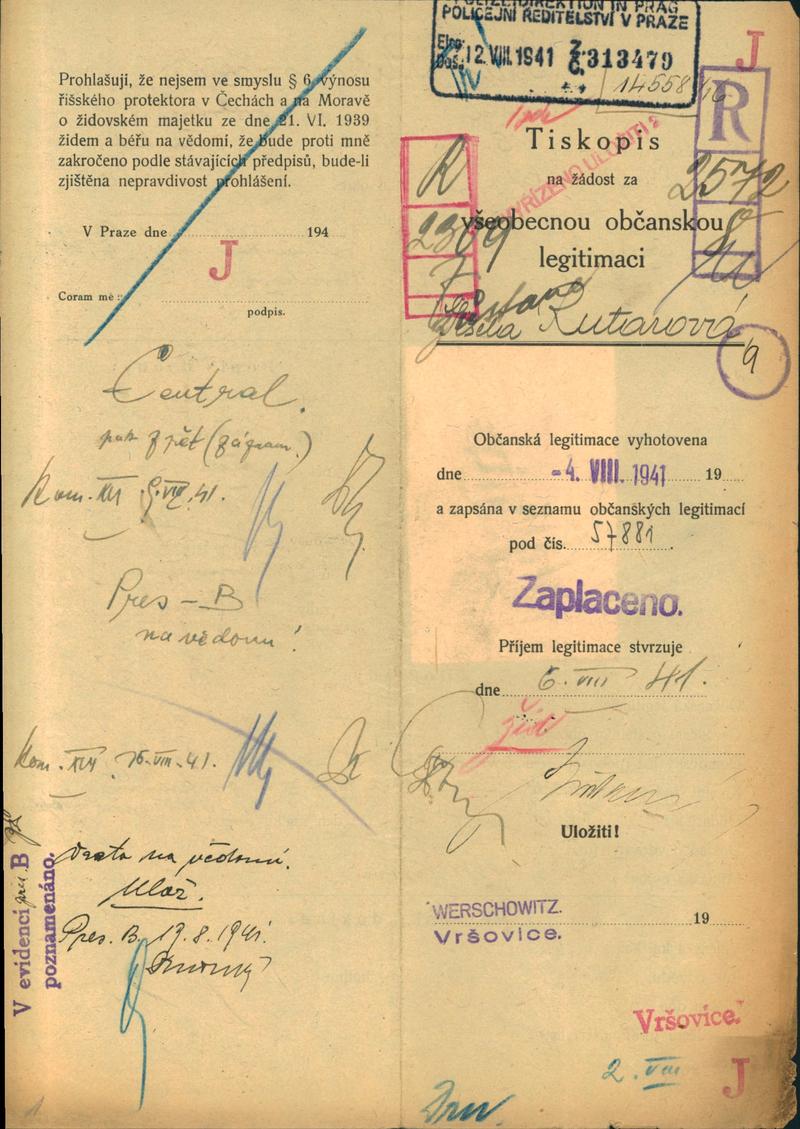 Prohlašuji, že nejsem ve smyslu § 6 výnosu
říšského protektora v Čechách a na Moravě
o židovském majetku ze dne 21. VI. 1939
židem a béřu na vědomí, že bude proti mně
zakročeno podle stávajících předpisů, bude-li
zjištěna nepravdivost prohlášení.
V Praze dne 194
J
Coram me :
podpis.
Central.
zpět
Kom. XIV 9. VIII. 41.
Pres - B
na vědomí!
Kom. XIV 16. VIII. 41.
na vědomí.
Ulož.
Pres. B. 19.8.1941.
V evidenci pres. B
poznamenáno.
POLIZEIDIREKTION IN PRAG
POLICEJNÍ ŘEDITELSTVÍ V PRAZE
12. VIII. 1941 Z 313479
14558
J
R
2572
Tiskopis
na žádost za
všeobecnou občanskou
legitimaci
K
2309
7
9
Občanská legitimace vyhotovena
dne - 4. VIII. 1941 19
a zapsána v seznamu občanských legitimací
pod čís. 57881
Zaplaceno.
Příjem legitimace stvrzuje
dne 6. VIII 41.
žid
Uložiti!
WERSCHOWITZ. 19
Vršovice.
Vršovice.
2. VIII
J